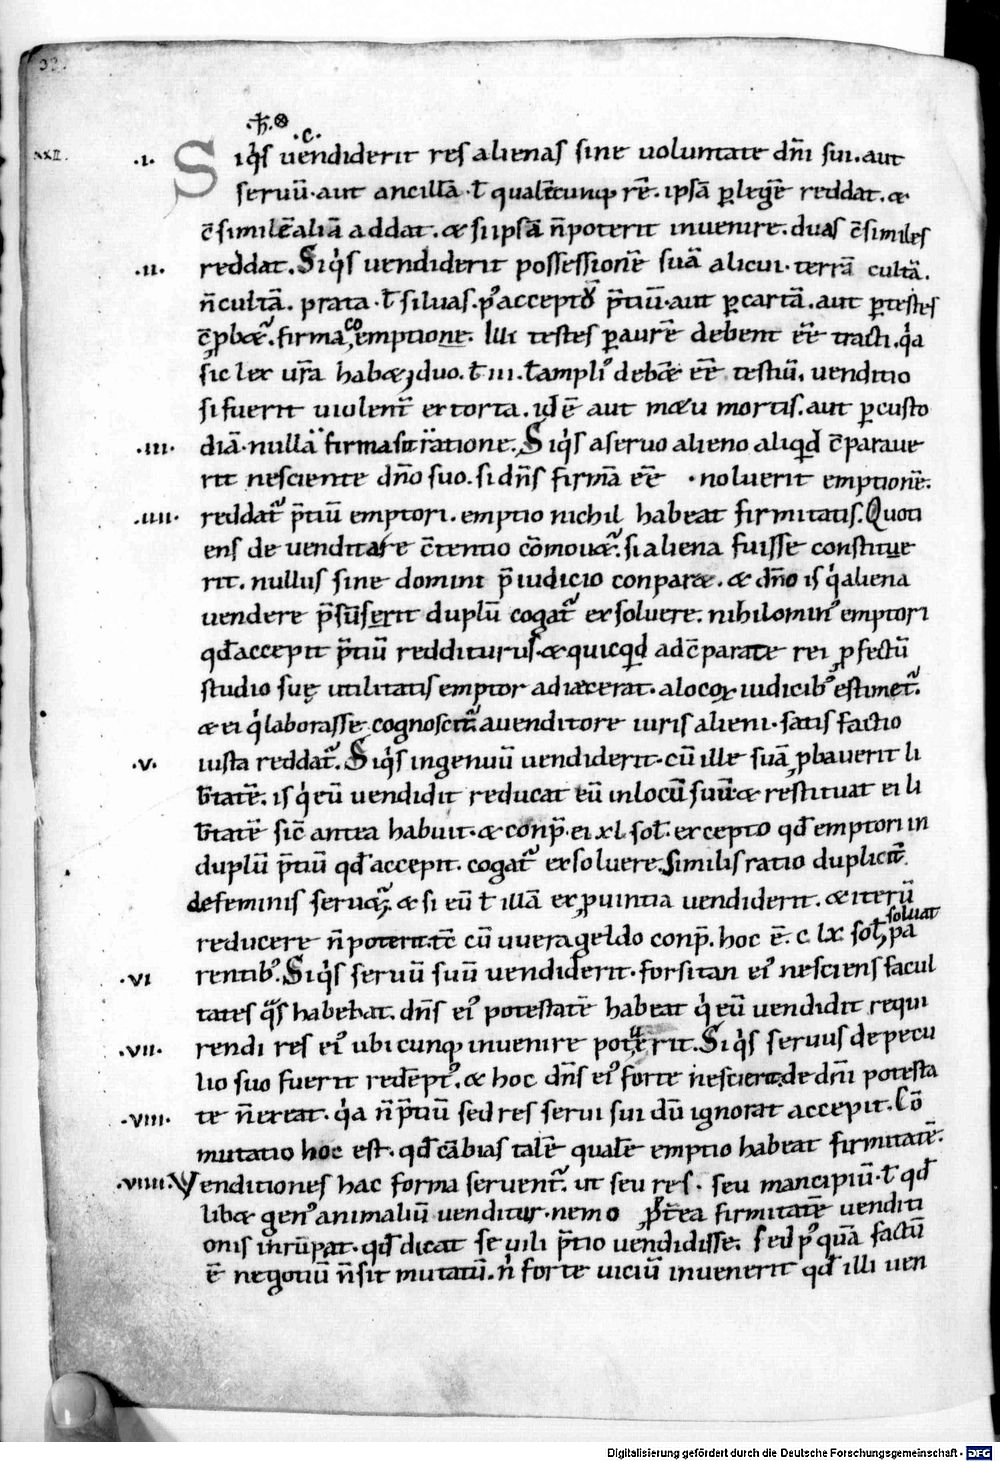 33.
·ħ·⊗
·c·
XXII. ·I· Siq̇s uendiderit res alienas sine uoluntate dn̄i sui. aut
seruū· aut ancillā· ł qualēcunq; rē. ipsā ꝑ legē reddat. &
c̄similē aliā addat. & si ipsā n̄ poterit inuenire. duas c̄similes
·II· reddat. Siq̇s uendiderit possessionē suā alicui· terrā cultā.
n̄ cultā. prata· ł siluas. p᾿ acceptū p̄tiū· aut ꝑ cartā. aut ꝑ testes
c̄ꝓbet᷑. firma sit emptio. Illi testes ꝑ aurē debent ēē tracti. q̇a
sic lex ur̄a habet; duo. ł III. ł ampli᾿ debēt ēē testiū. uenditio
si fuerit uiolent̄ extorta. id ē aut metu mortis. aut ꝑ custo
·III· diā· nullā firma sit ratione. Siq̇s a seruo alieno aliqid c̄paraue
rit nesciente dn̄o suo. si dn̄s firmā ēē ·noluerit emptionē.
·IIII· reddat᷑ p̄tiū emptori. emptio nichil habeat firmitatis. Quoti
ens de uenditare c̄tentio cōmouet᷑. si aliena fuisse constitue
rit. nullus sine domini p̄iudicio conparet. & dn̄o is q̇ aliena
uendere p̄sūserit duplū cogat᷑ exsoluere. nihilomin᾿ emptori
qđ accepit p̄tiū redditurus· & quicqid ad c̄parate rei ꝓfectū
studio suę utilitatis emptor adiecerat· a locoꝝ iudicib᾿ estimet᷑.
& ei q̇ laborasse cognoscit᷑ a uenditore iuris alieni· satisfactio
·V· iusta reddat᷑. Siq̇s ingenuū uendiderit· cū ille suā ꝓbauerit li
b̄tatē. is q̇ eū uendidit reducat eū in locū suū & restituat ei li
b̄tatē sic̄ antea habuit· & conp̄· ei xl· soł· excepto qđ emptori in
duplū p̄tiū qđ accepit. cogat᷑ exsoluere. Similis ratio duplicit̄
de feminis seruet᷑. & si eū ł illā ex ꝓuintia uendiderit. & iterū
reducere n̄ poterit. tc̄ cū uuerageldo conp̄. hoc ē. c lx soł, soluat pa
·VI rentib᾿. Siq̇s seruū suū uendiderit· forsitan ei᾿ nesciens facul
tates q̄s habebat. dn̄s ei᾿ potestatē habeat q̇ eū uendidit requi
·VII· rendi res ei᾿ ubicunq; inuenire potuerit. Siq̇s seruus de pecu
lio suo fuerit redēpt᾿. & hoc dn̄s ei᾿ forte nescierit. de dn̄i potesta
·VIII· te n̄ exeat· q̇a n̄ p̄tiū sed res serui sui dū ignorat accepit. Cō
mutatio hoc est· qđ cābias talē qualē emptio habeat firmitatē.
·VIIII· Venditiones hac forma seruent᷑. ut seu res· seu mancipiū· ł qđ
libet gen᾿ animaliū uenditur· nemo ꝓpt̄ea firmitatē uenditi
onis inrūpat· qđ dicat se uili p̄tio uendidisse. Sed p᾿ quā factū
ē negotiū n̄ sit mutatū. n̓ forte uiciū inuenerit qđ illi uen
Digitalisierung gefördert durch die Deutsche Forschungsgemeinschaft - DFG